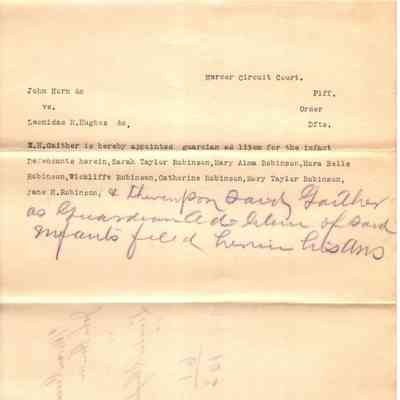 Mercer Circuit Court.
John Horn &c Plff.
vs. Order
Leonidas H.Hughes &c, Dfts.
E.H.Gaither is hereby appointed guardian ad litem for the infant
Defendants herein,Sarah Taylor Robinson,Mary Alma Robinson,Hara Belle
Robinson,Wickliffe Robinson,Catherine Robinson,Mary Taylor Robinson,
Jane H.Robinson, & thereupon said Gaither
as Guardian Ad litem of said
infants filed herein his Ans